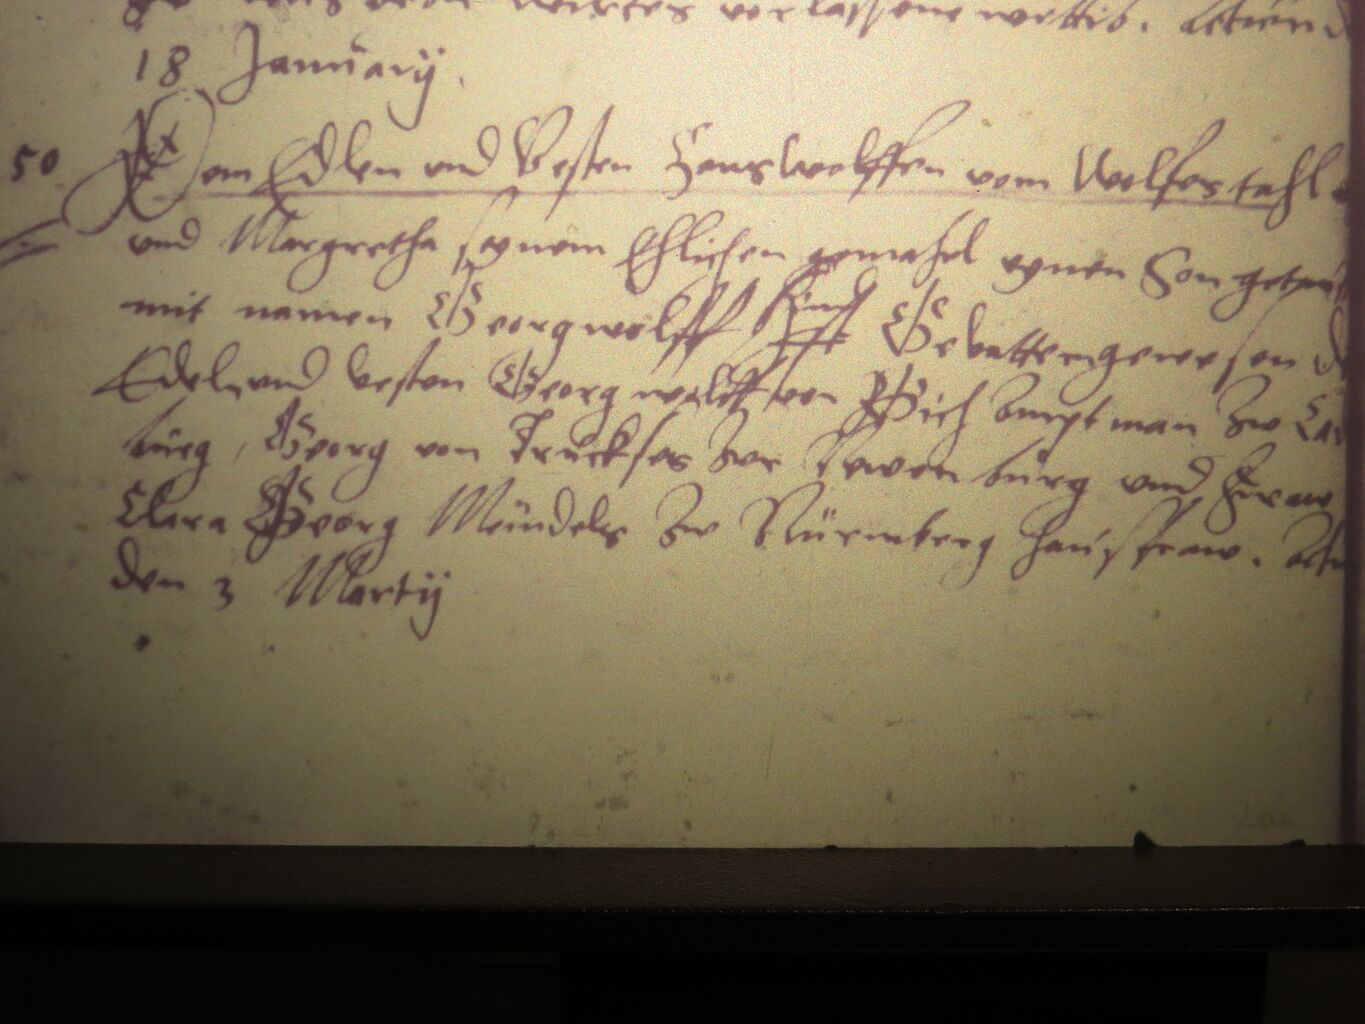 verlassene wittib. Actum
18 January.
50 Dem Edlen und Vesten Hans Wolffen vom Wolfestahl
und Margretha seynem Ehlichen gemahel eynen Son getau
mit namen Georg wolff Gevattern gewesen d
Edel und Vesten Georg wolff von amptman zw
burg, Georg von Truckses zur burg und Fraw
Clara Georg Meindels zw Nürmberg hausfraw. Actu
den 3 Martij